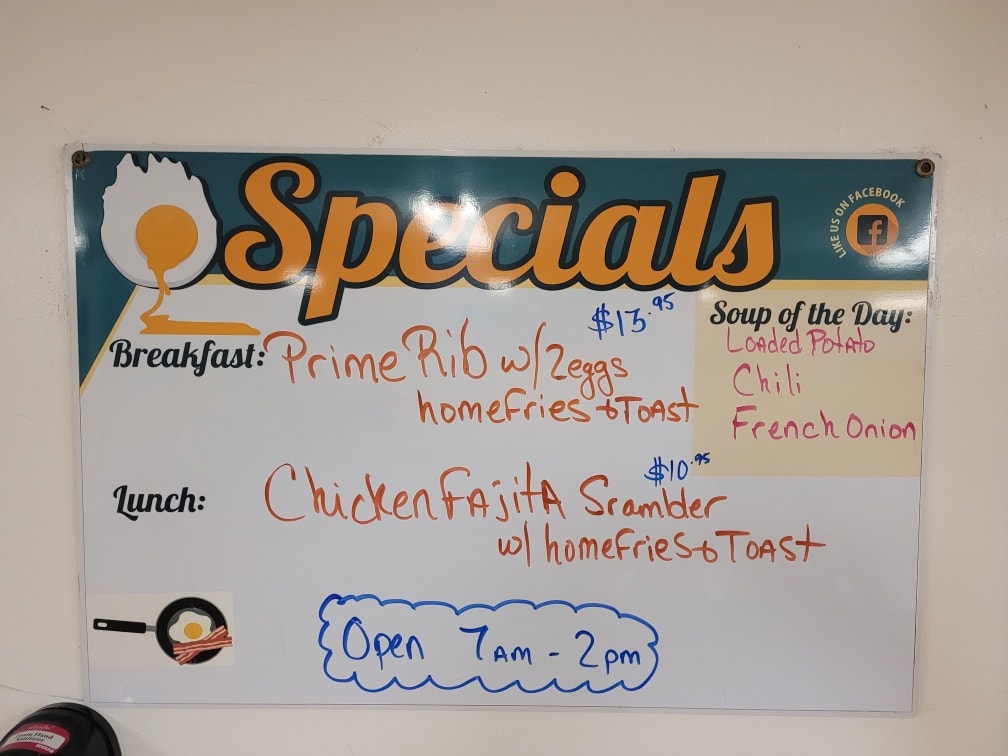 Specials
LIKE US ON FACEBOOK
f
$13.95
Breakfast: Prime Rib w/ 2 eggs
homeFries & TOAST
Soup of the Day:
Loaded Potato
Chili
French Onion
$10.95
Lunch: Chicken FAjitA Srambler
w/ homeFries & TOAST
Open 7AM - 2pm
Hand